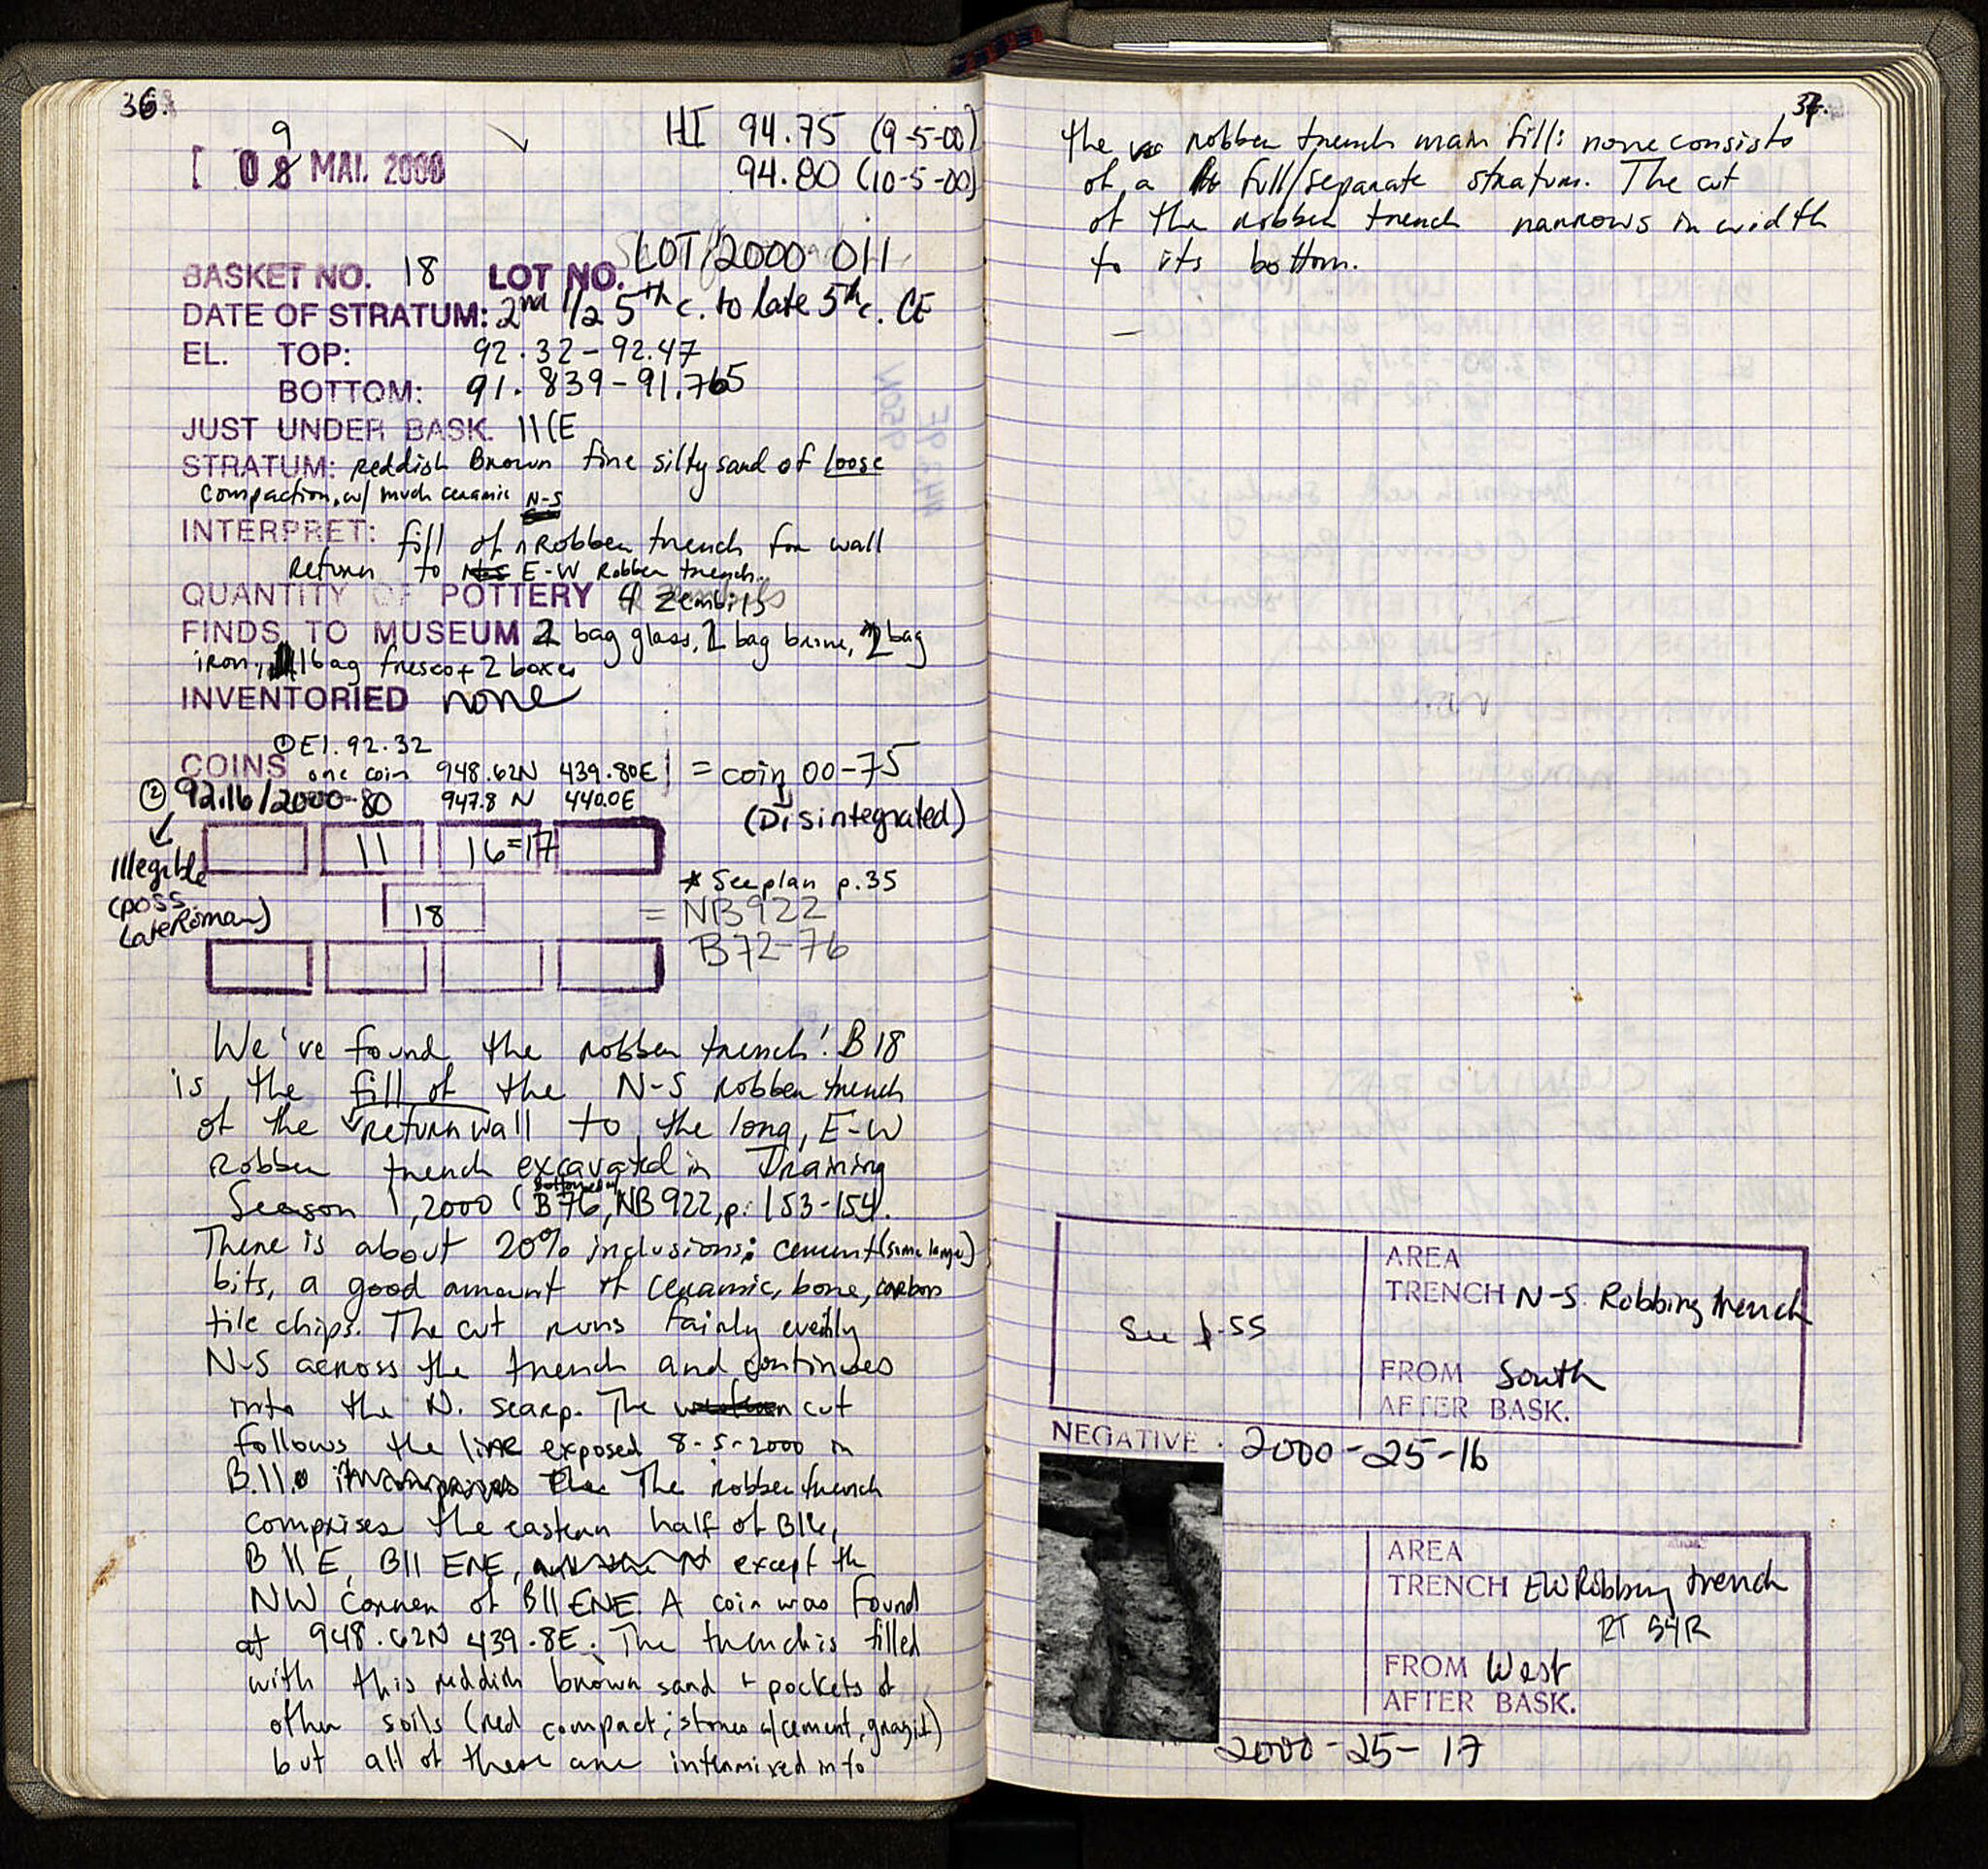 36.
9
08 MAI. 2000
HI 94.75 (9-5-00)
94.80 (10-5-00)
BASKET NO. 18 LOT NO. LOT/2000 011
DATE OF STRATUM: 2nd 1/2 5th c. to late 5th c. CE
EL. TOP: 92.32-92.47
BOTTOM: 91.839-91.765
JUST UNDER BASK. 11(E
STRATUM: reddish Brown fine silty sand of loose
compaction, w/ much ceramic
N-S
INTERPRET: fill of Robber trench for wall
return to E-W Robber trench.
QUANTITY OF POTTERY 4 zembils
FINDS TO MUSEUM 2 bag glass, 2 bag bone, 2 bag
iron, 1 bag fresco + 2 boxes
INVENTORIED none
① El. 92.32
COINS one coin 948.62N 439.80E = coin 00-75
② 92.16/2000-80 947.8 N 440.0E (Disintegrated)
11 16=17
Illegible
(poss.
Late Roman)
* See plan p.35
18 = NB922
B72-76
We've found the robber trench! B18
is the fill of the N-S robber trench
of the return wall to the long, E-W
Robber trench excavated in Training
Season 1, 2000 (B76, NB922, p. 153-154.
There is about 20% inclusions: cement (some large)
bits, a good amount of ceramic, bone, carbon
tile chips. The cut runs fairly evenly
N-S across the trench and continues
into the N. scarp. The cut
follows the line exposed 8-5-2000 in
B.11. The robber trench
comprises the eastern half of B16,
B 11 E, B11 ENE, except the
NW corner of B11 ENE. A coin was found
at 948.62N 439.8E. The trench is filled
with this reddish brown sand + pockets of
other soils (red compact; stones w/cement,
but all of these are intermixed into
37.
the robber trench main fill: none consists
of a full/separate stratum. The cut
of the robber trench narrows in width
to its bottom.
—
See p.55
AREA
TRENCH N-S Robbing trench
FROM South
AFTER BASK.
NEGATIVE 2000-25-16
AREA
TRENCH EW Robbing trench
RT 54R
FROM West
AFTER BASK.
2000-25-17